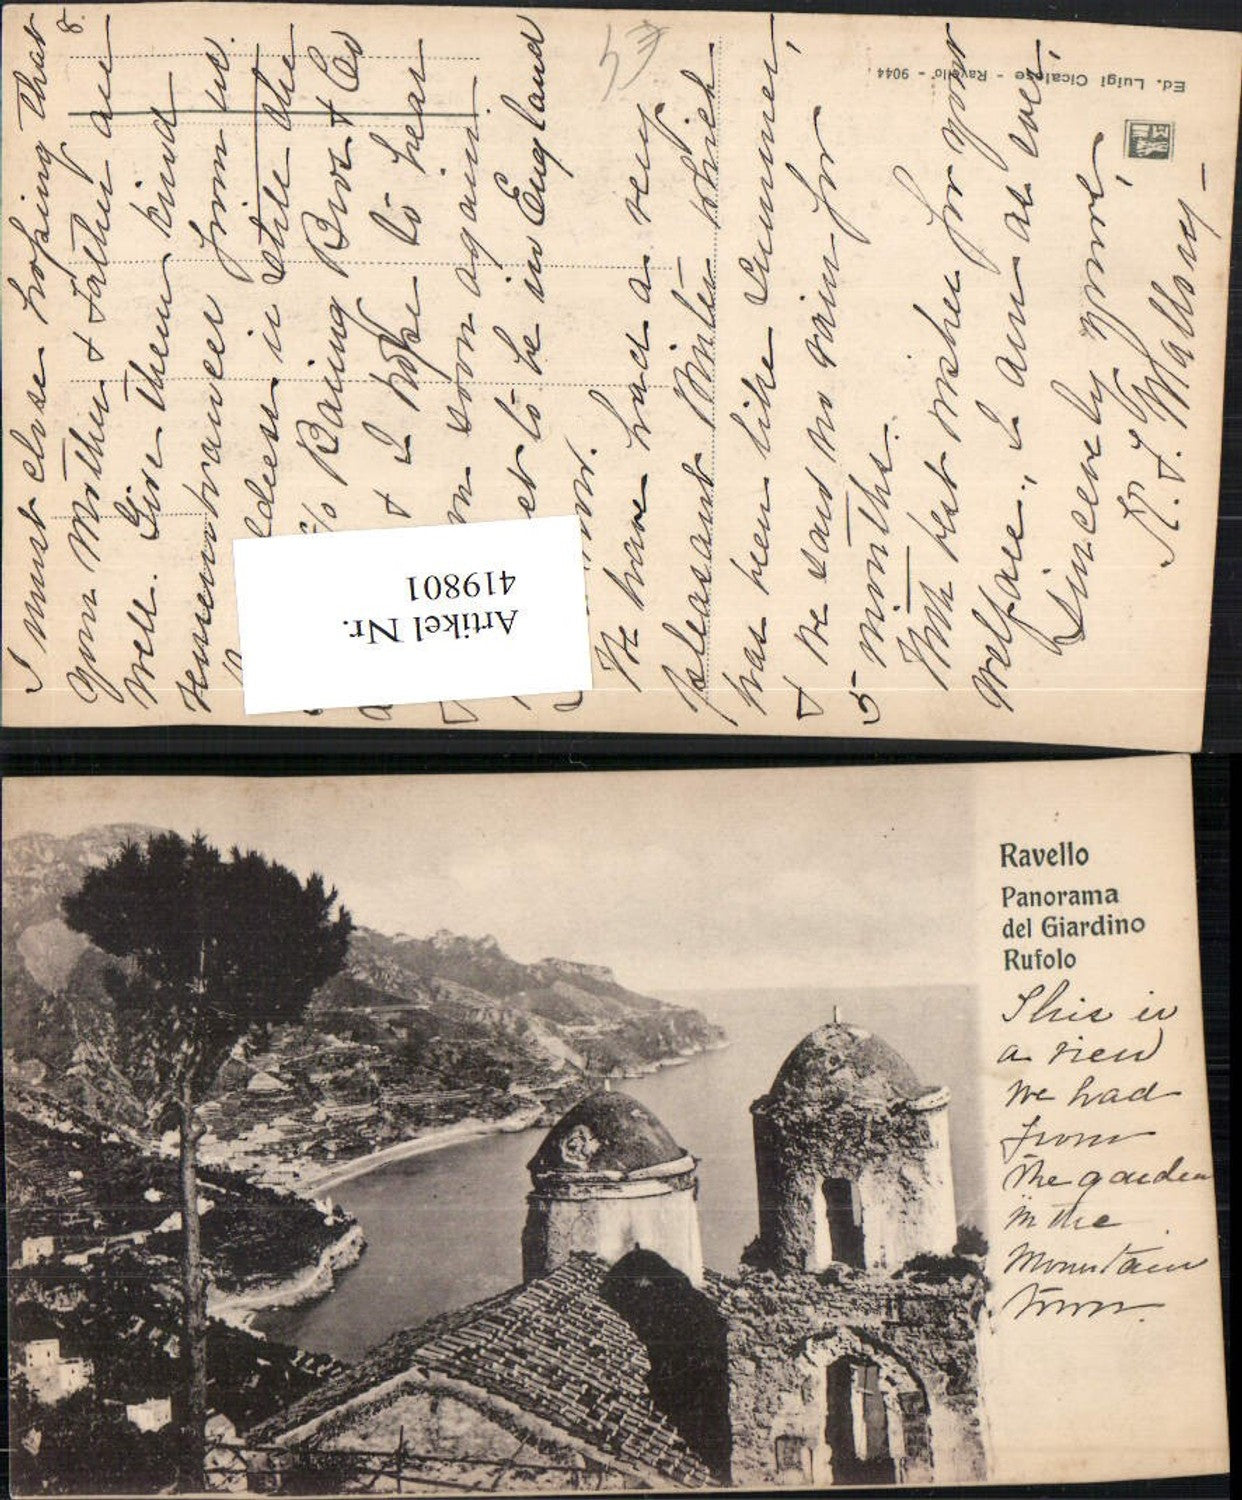 8.
I must close hoping that
your Mother & Father are
well. Give them kind
remembrances from us.
address is still the
c/o Baring Bros & Co
& I hope to hear
from soon again.
to be in England
We have had a very
pleasant Winter which
has been like Summer,
& we saw no rain for
5 months.
With best wishes for your
welfare, I am as ever,
Sincerely yours,
R. T. Mallony -
Ed. Luigi Cicalese - Ravello - 9044
Artikel Nr.
419801
Ravello
Panorama
del Giardino
Rufolo
This is
a view
we had
from
the garden
in the
Mountain
town.